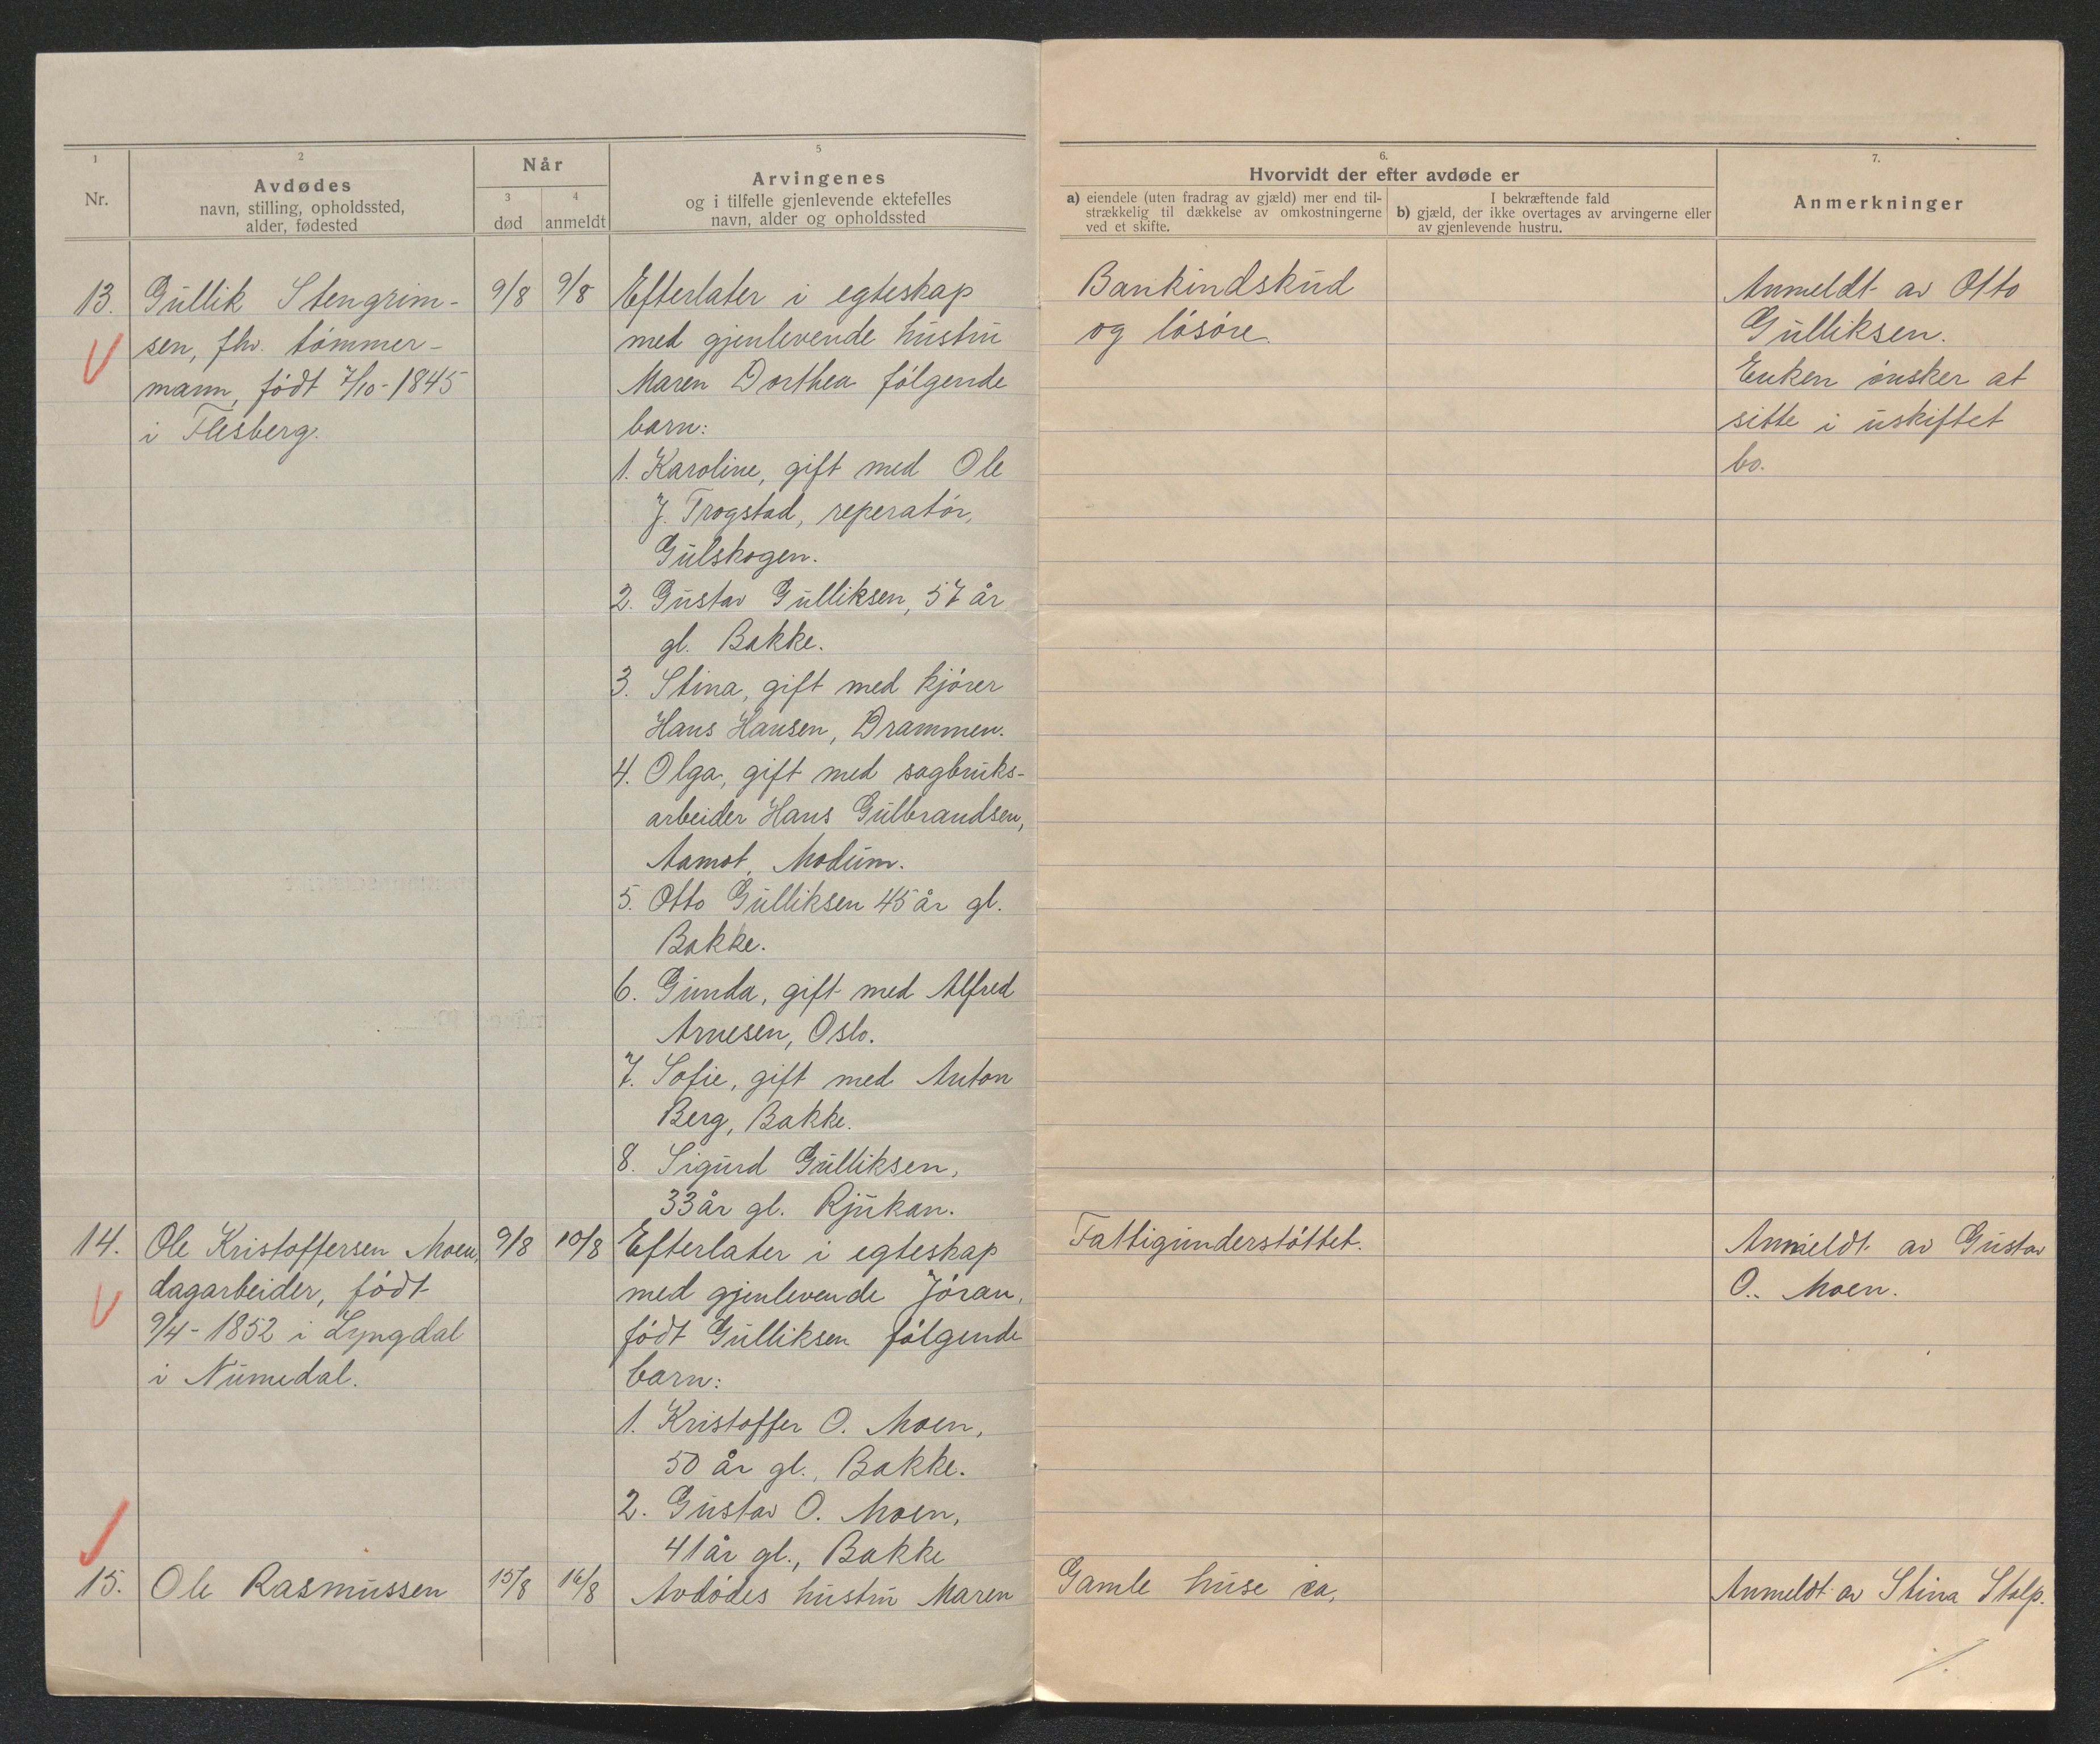 1
Nr.
2
Avdødes
navn, stilling, opholdssted,
alder, fødested
Når
3
død
4
anmeldt
5
Arvingenes
og i tilfelle gjenlevende ektefelles
navn, alder og opholdssted
6.
Hvorvidt der efter avdøde er
a) eiendele (uten fradrag av gjæld) mer end til-
strækkelig til dækkelse av omkostningerne
ved et skifte.
I bekræftende fald
b) gjæld, der ikke overtages av arvingerne eller
av gjenlevende hustru.
7.
Anmerkninger
13.
Gullik Stengrim-
sen, fhv. tømmer-
mann, født 7/10-1845
i Flesberg.
9/8
9/8
Efterlater i egteskap
med gjenlevende hustru
Maren Dorthea følgende
barn:
1. Karoline, gift med Ole
J. Trogstad, reperatør,
Gulskogen.
2. Gustav Gulliksen, 57 år
gl. Bakke.
3. Stina, gift med kjører
Hans Hansen, Drammen.
4. Olga, gift med sagbruks-
arbeider Hans Gulbrandsen,
Aamot, Modum.
5. Otto Gulliksen 45 år gl.
Bakke.
6. Gunda, gift med Alfred
Arnesen, Oslo.
7. Sofie, gift med Anton
Berg, Bakke.
8. Sigurd Gulliksen,
33 år gl. Rjukan.
Bankindskud
og løsøre.
Anmeldt av Otto
Gulliksen.
Enken ønsker at
sitte i uskiftet
bo.
14.
Ole Kristoffersen Moen,
dagarbeider, født
9/4-1852 i Lyngdal
i Numedal.
9/8
10/8
Efterlater i egteskap
med gjenlevende Jøran,
født Gulliksen følgende
barn:
1. Kristoffer O. Moen,
50 år gl., Bakke.
2. Gustav O. Moen,
41 år gl., Bakke
Fattigunderstøttet.
Anmeldt av Gustav
O. Moen.
15.
Ole Rasmussen
15/8
16/8
Avdødes hustru Maren
Gamle huse ca.
Anmeldt av Stina Stolp.